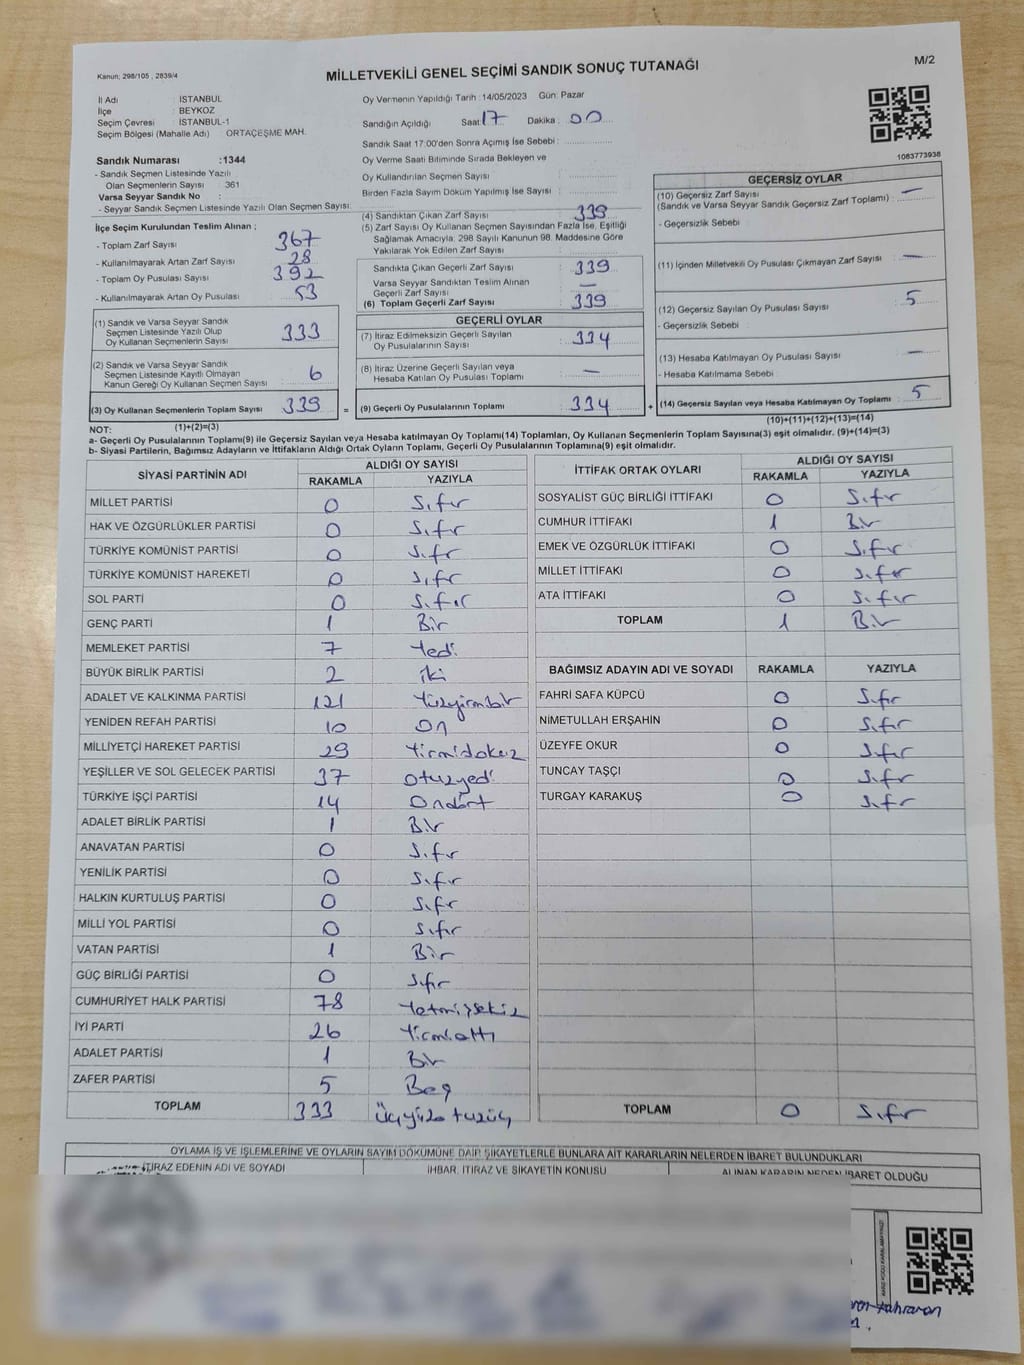 Kanun; 298/105 , 2839/4
MİLLETVEKİLİ GENEL SEÇİMİ SANDIK SONUÇ TUTANAĞI
M/2
İl Adı : İSTANBUL
İlçe : BEYKOZ
Seçim Çevresi : İSTANBUL-1
Seçim Bölgesi (Mahalle Adı) ORTAÇEŞME MAH.
Sandık Numarası :1344
- Sandık Seçmen Listesinde Yazılı
Olan Seçmenlerin Sayısı : 361
Varsa Seyyar Sandık No :
- Seyyar Sandık Seçmen Listesinde Yazılı Olan Seçmen Sayısı:
Oy Vermenin Yapıldığı Tarih :14/05/2023 Gün: Pazar
Sandığın Açıldığı Saat: 17 Dakika : 00
Sandık Saat 17:00'den Sonra Açımış İse Sebebi :
Oy Verme Saati Bitiminde Sırada Bekleyen ve
Oy Kullandırılan Seçmen Sayısı :
Birden Fazla Sayım Döküm Yapılmış İse Sayısı :
1083773938
İlçe Seçim Kurulundan Teslim Alınan ;
- Toplam Zarf Sayısı : 367
- Kullanılmayarak Artan Zarf Sayısı : 28
- Toplam Oy Pusulası Sayısı : 392
- Kullanılmayarak Artan Oy Pusulası : 53
(1) Sandık ve Varsa Seyyar Sandık
Seçmen Listesinde Yazılı Olup
Oy Kullanan Seçmenlerin Sayısı : 333
(2) Sandık ve Varsa Seyyar Sandık
Seçmen Listesinde Kayıtlı Olmayan
Kanun Gereği Oy Kullanan Seçmen Sayısı : 6
(3) Oy Kullanan Seçmenlerin Toplam Sayısı : 339
(1)+(2)=(3)
(4) Sandıktan Çıkan Zarf Sayısı : 339
(5) Zarf Sayısı Oy Kullanan Seçmen Sayısından Fazla İse, Eşitliği
Sağlamak Amacıyla; 298 Sayılı Kanunun 98. Maddesine Göre
Yakılarak Yok Edilen Zarf Sayısı :
Sandıkta Çıkan Geçerli Zarf Sayısı : 339
Varsa Seyyar Sandıktan Teslim Alınan
Geçerli Zarf Sayısı : —
(6) Toplam Geçerli Zarf Sayısı : 339
GEÇERLİ OYLAR
(7) İtiraz Edilmeksizin Geçerli Sayılan
Oy Pusulalarının Sayısı : 334
(8) İtiraz Üzerine Geçerli Sayılan veya
Hesaba Katılan Oy Pusulası Toplamı : —
= (9) Geçerli Oy Pusulalarının Toplamı : 334 +
GEÇERSİZ OYLAR
(10) Geçersiz Zarf Sayısı : —
(Sandık ve Varsa Seyyar Sandık Geçersiz Zarf Toplamı)
- Geçersizlik Sebebi :
(11) İçinden Milletvekili Oy Pusulası Çıkmayan Zarf Sayısı : —
(12) Geçersiz Sayılan Oy Pusulası Sayısı : 5
- Geçersizlik Sebebi :
(13) Hesaba Katılmayan Oy Pusulası Sayısı : —
- Hesaba Katılmama Sebebi :
(14) Geçersiz Sayılan veya Hesaba Katılmayan Oy Toplamı : 5
(10)+(11)+(12)+(13)=(14)
NOT:
a- Geçerli Oy Pusulalarının Toplamı(9) ile Geçersiz Sayılan veya Hesaba katılmayan Oy Toplamı(14) Toplamları, Oy Kullanan Seçmenlerin Toplam Sayısına(3) eşit olmalıdır. (9)+(14)=(3)
b- Siyasi Partilerin, Bağımsız Adayların ve İttifakların Aldığı Ortak Oyların Toplamı, Geçerli Oy Pusulalarının Toplamına(9) eşit olmalıdır.
SİYASİ PARTİNİN ADI ALDIĞI OY SAYISI
RAKAMLA YAZIYLA
MİLLET PARTİSİ 0 Sıfır
HAK VE ÖZGÜRLÜKLER PARTİSİ 0 Sıfır
TÜRKİYE KOMÜNİST PARTİSİ 0 Sıfır
TÜRKİYE KOMÜNİST HAREKETİ 0 Sıfır
SOL PARTİ 0 Sıfır
GENÇ PARTİ 1 Bir
MEMLEKET PARTİSİ 7 Yedi
BÜYÜK BİRLİK PARTİSİ 2 iki
ADALET VE KALKINMA PARTİSİ 121 Yüzyirmibir
YENİDEN REFAH PARTİSİ 10 On
MİLLİYETÇİ HAREKET PARTİSİ 29 Yirmidokuz
YEŞİLLER VE SOL GELECEK PARTİSİ 37 Otuzyedi
TÜRKİYE İŞÇİ PARTİSİ 14 Ondört
ADALET BİRLİK PARTİSİ 1 Bir
ANAVATAN PARTİSİ 0 Sıfır
YENİLİK PARTİSİ 0 Sıfır
HALKIN KURTULUŞ PARTİSİ 0 Sıfır
MİLLİ YOL PARTİSİ 0 Sıfır
VATAN PARTİSİ 1 Bir
GÜÇ BİRLİĞİ PARTİSİ 0 Sıfır
CUMHURİYET HALK PARTİSİ 78 Yetmişsekiz
İYİ PARTİ 26 Yirmialtı
ADALET PARTİSİ 1 Bir
ZAFER PARTİSİ 5 Beş
TOPLAM 333 Üçyüzotuzüç
İTTİFAK ORTAK OYLARI ALDIĞI OY SAYISI
RAKAMLA YAZIYLA
SOSYALİST GÜÇ BİRLİĞİ İTTİFAKI 0 Sıfır
CUMHUR İTTİFAKI 1 Bir
EMEK VE ÖZGÜRLÜK İTTİFAKI 0 Sıfır
MİLLET İTTİFAKI 0 Sıfır
ATA İTTİFAKI 0 Sıfır
TOPLAM 1 Bir
BAĞIMSIZ ADAYIN ADI VE SOYADI RAKAMLA YAZIYLA
FAHRİ SAFA KÜPCÜ 0 Sıfır
NİMETULLAH ERŞAHİN 0 Sıfır
ÜZEYFE OKUR 0 Sıfır
TUNCAY TAŞÇI 0 Sıfır
TURGAY KARAKUŞ 0 Sıfır
TOPLAM 0 Sıfır
OYLAMA İŞ VE İŞLEMLERİNE VE OYLARIN SAYIM DÖKÜMÜNE DAİR ŞİKAYETLERLE BUNLARA AİT KARARLARIN NELERDEN İBARET BULUNDUKLARI
İTİRAZ EDENİN ADI VE SOYADI İHBAR, İTİRAZ VE ŞİKAYETİN KONUSU ALINAN KARARIN NEDEN İBARET OLDUĞU